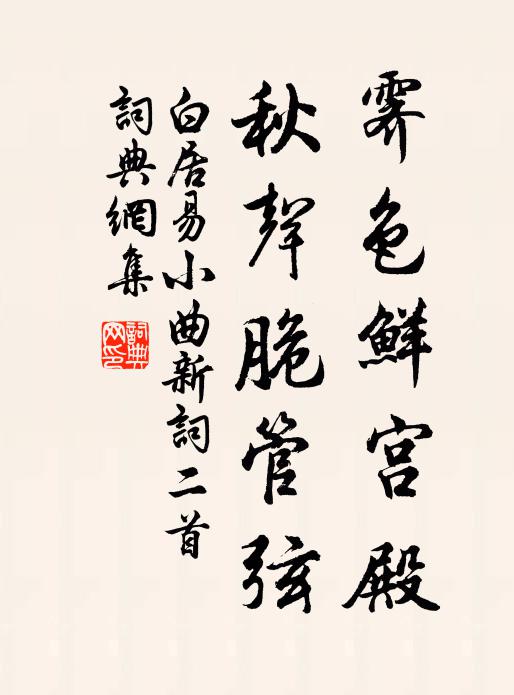 霽色鮮宮殿
秋聲脆管弦
白居易小曲新詞二首
詞典網集
詞典网印